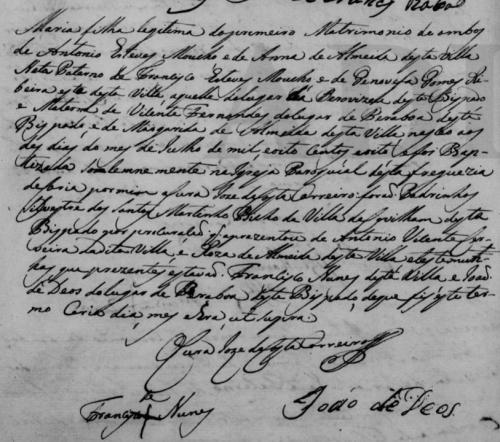 Maria filha legitima do primeiro Matrimonio de ambos
de Antonio Esteves Moucho e de Anna de Almeida desta Villa
Neta Paterna de Francisco Esteves Moucho e de Genoveja Gomes Ri
beira este desta Villa, aquella do lugar da deste Bispado
e Materna de Vicente Fernandes do lugar de Peraboa deste
Bispado e de Margarida de Almeida desta Villa nasceo aos
des dias do mes de Julho de mil oito centos oito e foi Bap
tizada Solemnemente na Igreja Paroquial desta freguezia
de Caria por mim o Cura Joze da Costa Correiro forão Padrinhos
Silvestre dos Santos Martinho da Villa da Covilham desta
Bispado por procuração q. aprezentou de Antonio Vicente
da dita Villa, e Roza de Almeida desta Villa e testemu
nhas que prezentes estavão Francisco Nunes desta Villa e João
de Deos do lugar de Peraboa deste Bispado, de que fis este ter
mo Caria dia, mes e Era ut supra.
O Cura Joze da Costa Correiro
Francisco Nunes
João de Deos.